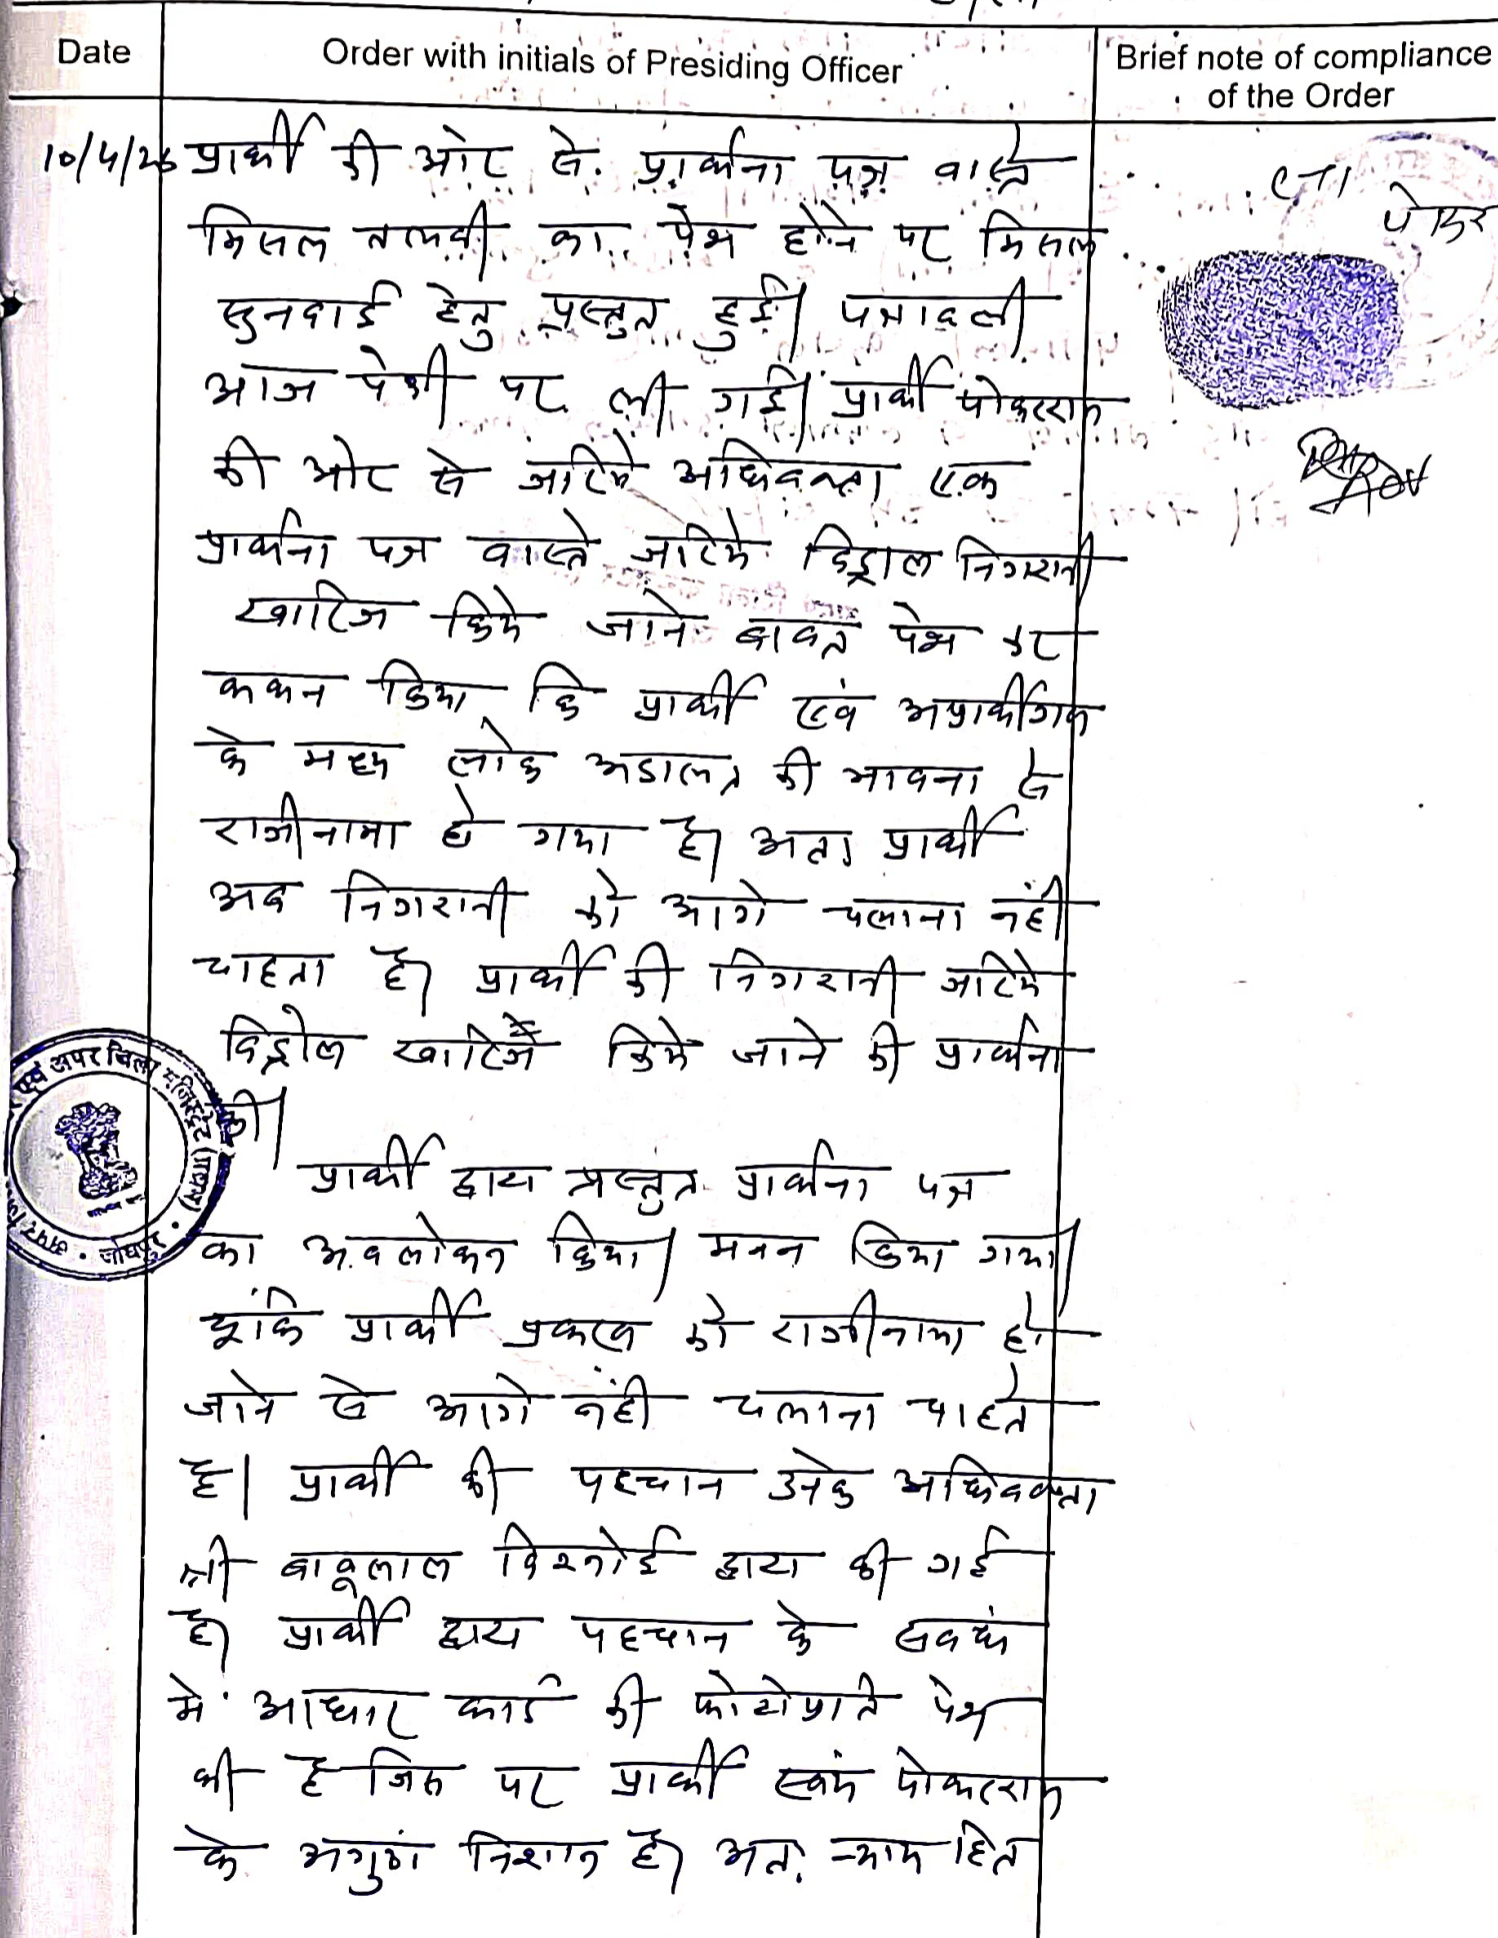 Date
Order with initials of Presiding Officer
Brief note of compliance
of the Order
10/4/26 प्रार्थी की ओर से प्रार्थना पत्र वास्ते
मिसल तलबी का पेश होने पर मिसल
सुनवाई हेतु प्रस्तुत हुई। पत्रावली
आज पेशी पर ली गई। प्रार्थी पोकरराम
की ओर से जरिये अधिवक्ता एक
प्रार्थना पत्र वास्ते जरिये विड्राल निगरानी
खारिज किये जाने बाबत पेश कर
कथन किया कि प्रार्थी एवं अप्रार्थीगण
के मध्य लोक अदालत की भावना से
राजीनामा हो गया है। अतः प्रार्थी
अब निगरानी को आगे चलाना नहीं
चाहता है। प्रार्थी की निगरानी जरिये
विड्रोल खारिज किये जाने की प्रार्थना
की।
प्रार्थी द्वारा प्रस्तुत प्रार्थना पत्र
का अवलोकन किया। मनन किया गया।
चूंकि प्रार्थी प्रकरण को राजीनामा हो
जाने से आगे नहीं चलाना चाहते
है। प्रार्थी की पहचान उनके अधिवक्ता
श्री बाबूलाल विश्नोई द्वारा की गई
है। प्रार्थी द्वारा पहचान के संबंध
मे आधार कार्ड की फोटोप्रति पेश
की है जिस पर प्रार्थी स्वयं पोकरराम
के अगुठा निशान है। अतः न्याय हित
पोकर
एवं अपर जिला मजिस्ट्रेट (प्रथम)
जोधपुर